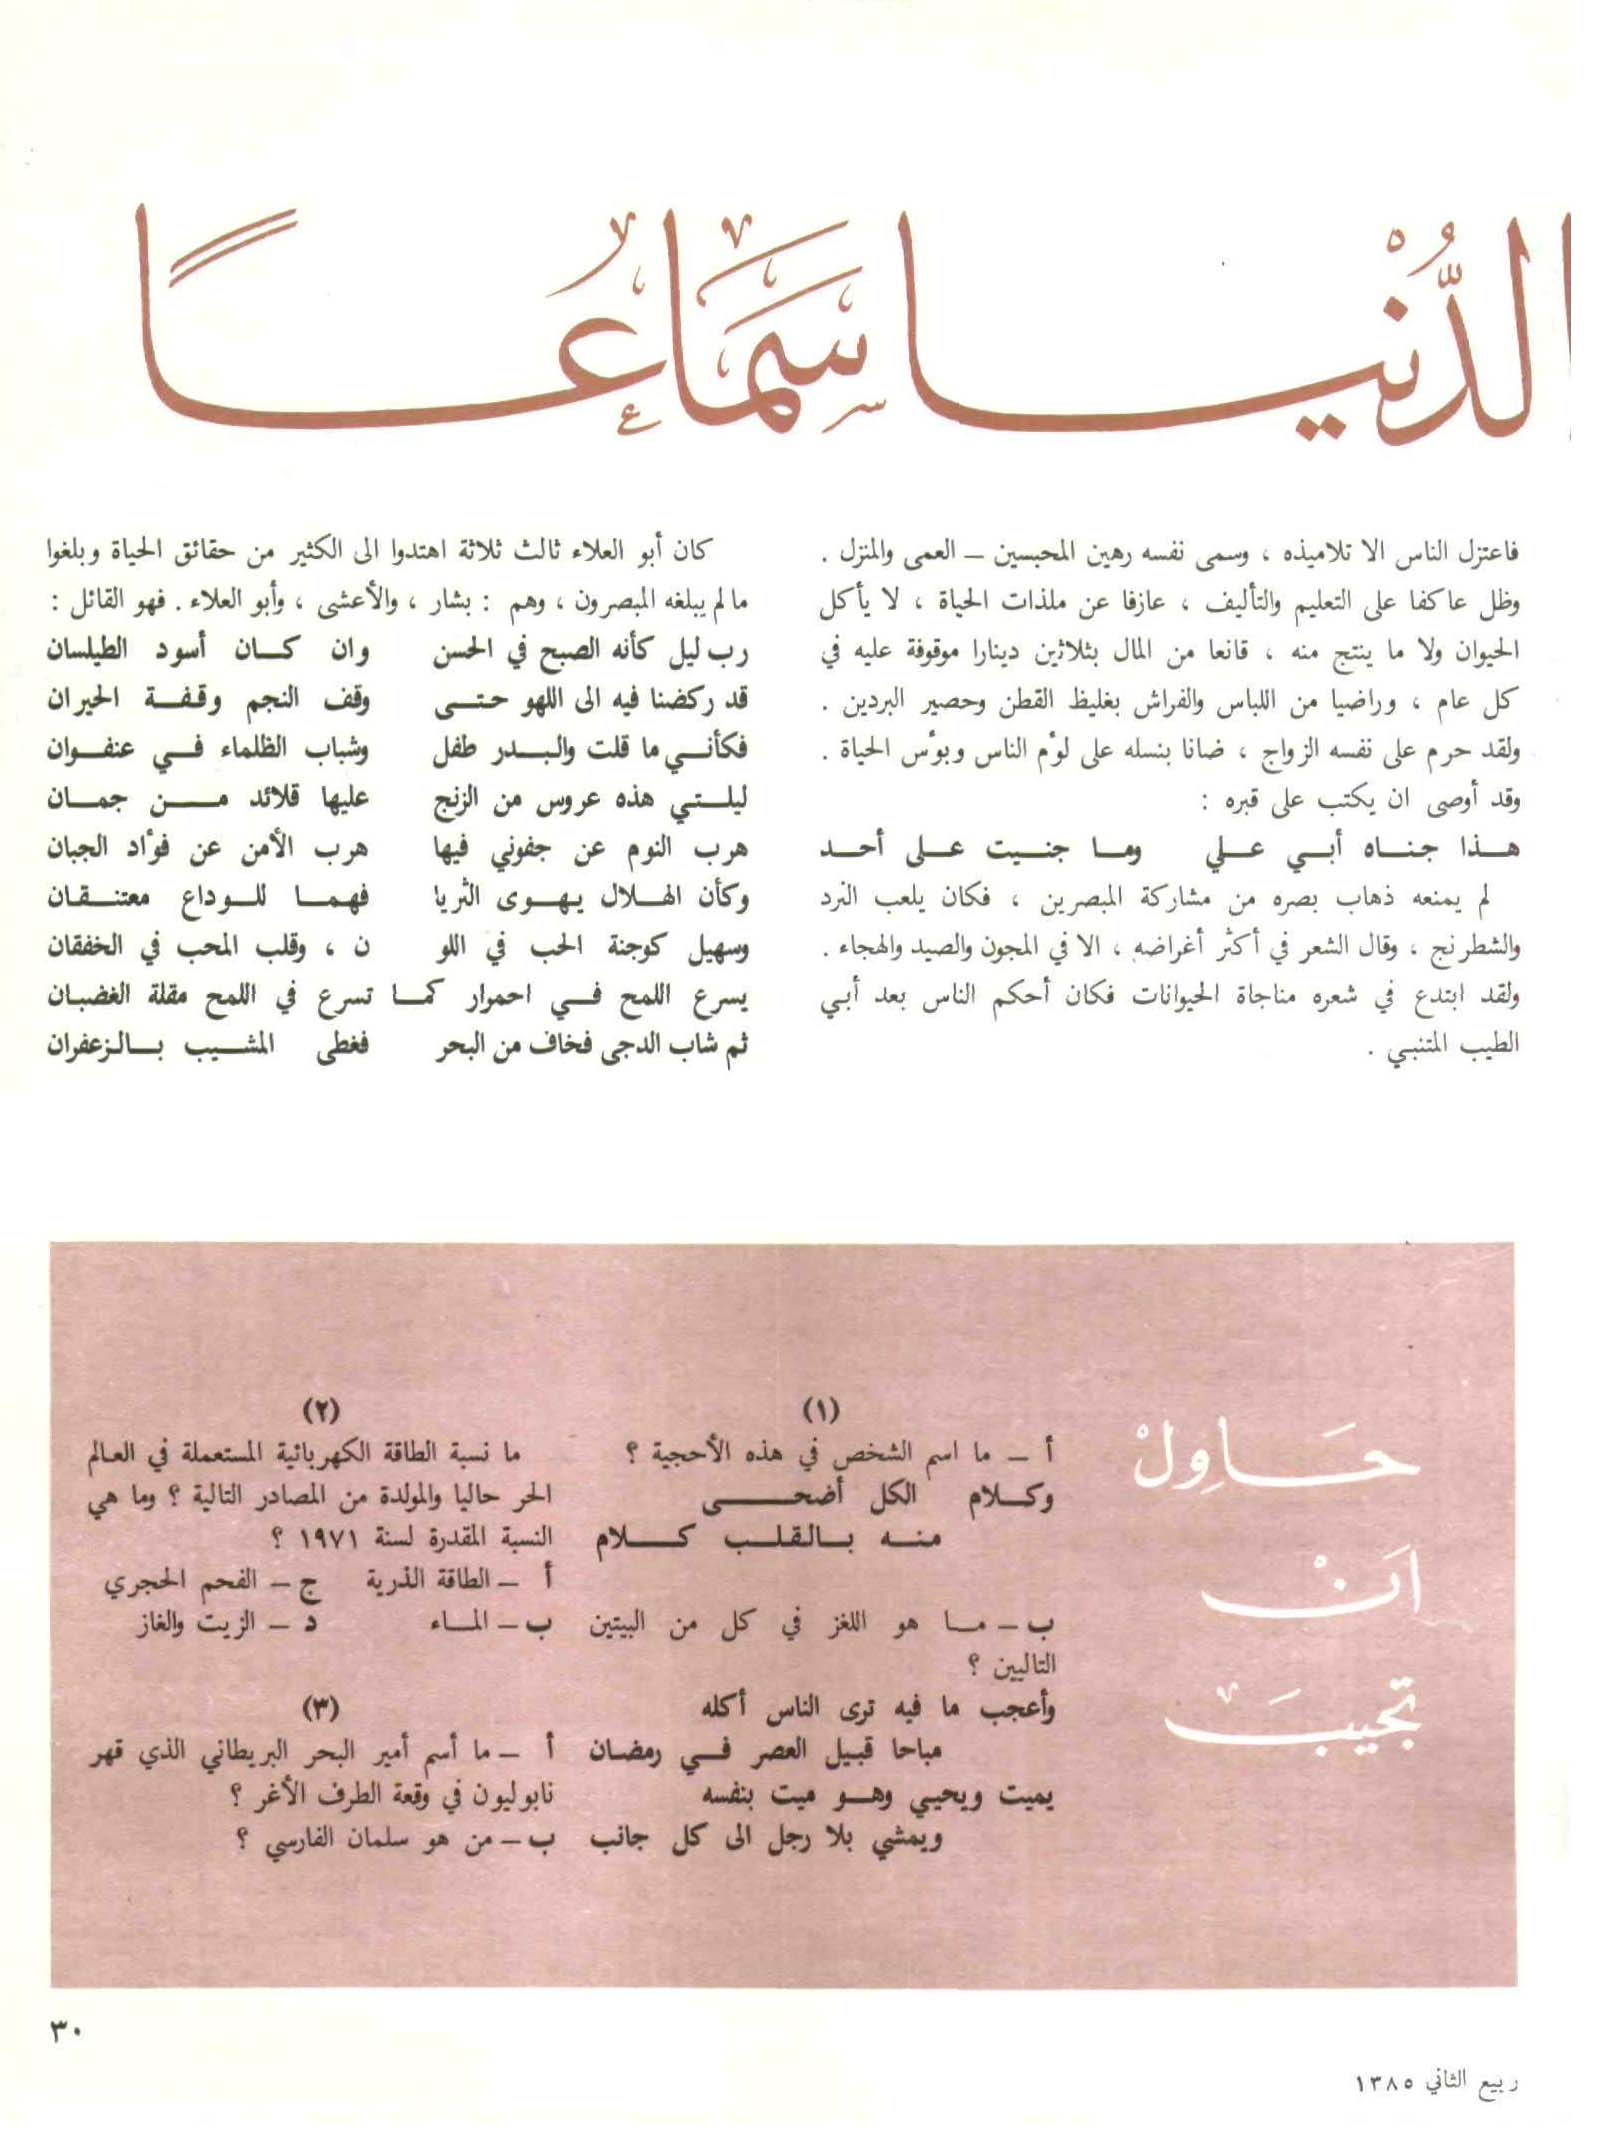 الدُّنْيَا سَمَاعًا
فاعتزل الناس الا تلاميذه ، وسمى نفسه رهين المحبسين – العمى والمنزل .
وظل عاكفا على التعليم والتأليف ، عازفا عن ملذات الحياة ، لا يأكل
الحيوان ولا ما ينتج منه ، قانعا من المال بثلاثين دينارا موقوفة عليه في
كل عام ، وراضيا من اللباس والفراش بغليظ القطن وحصير البردين .
ولقد حرم على نفسه الزواج ، ضانا بنسله على لؤم الناس وبؤس الحياة .
وقد أوصى ان يكتب على قبره :
هذا جناه أبي علي وما جنيت على أحد
لم يمنعه ذهاب بصره من مشاركة المبصرين ، فكان يلعب النرد
والشطرنج ، وقال الشعر في أكثر أغراضه ، الا في المجون والصيد والهجاء .
ولقد ابتدع في شعره مناجاة الحيوانات فكان أحكم الناس بعد أبي
الطيب المتنبي .
كان أبو العلاء ثالث ثلاثة اهتدوا الى الكثير من حقائق الحياة وبلغوا
مالم يبلغه المبصرون ، وهم : بشار ، والأعشى ، وأبو العلاء . فهو القائل :
رب ليل كأنه الصبح في الحسن وان كان أسود الطيلسان
قد ركضنا فيه الى اللهو حتى وقف النجم وقفة الحيران
فكأني ما قلت والبدر طفل وشباب الظلماء في عنفوان
ليلتي هذه عروس من الزنج عليها قلائد من جمان
هرب النوم عن جفوني فيها هرب الأمن عن فؤاد الجبان
وكأن الهلال يهوى الثريا فهما للوداع معتنقان
وسهيل كوجنة الحب في اللو ن ، وقلب المحب في الخفقان
يسرع اللمح في احمرار كما تسرع في اللمح مقلة الغضبان
ثم شاب الدجى فخاف من البحر فغطى المشيب بالزعفران
حَاوِلْ
اَنْ
تجيبَ
(١)
أ – ما اسم الشخص في هذه الأحجية ؟
وكلام الكل أضحى
منه بالقلب كلام
ب – ما هو اللغز في كل من البيتين
التاليين ؟
وأعجب ما فيه ترى الناس أكله
مباحا قبيل العصر في رمضان
يميت ويحيي وهو ميت بنفسه
ويمشي بلا رجل الى كل جانب
(٢)
ما نسبة الطاقة الكهربائية المستعملة في العالم
الحر حاليا والمولدة من المصادر التالية ؟ وما هي
النسبة المقدرة لسنة ١٩٧١ ؟
أ – الطاقة الذرية ج – الفحم الحجري
ب – الماء د – الزيت والغاز
(٣)
أ – ما أسم أمير البحر البريطاني الذي قهر
نابوليون في وقعة الطرف الأغر ؟
ب – من هو سلمان الفارسي ؟
٣٠
ربيع الثاني ١٣٨٥